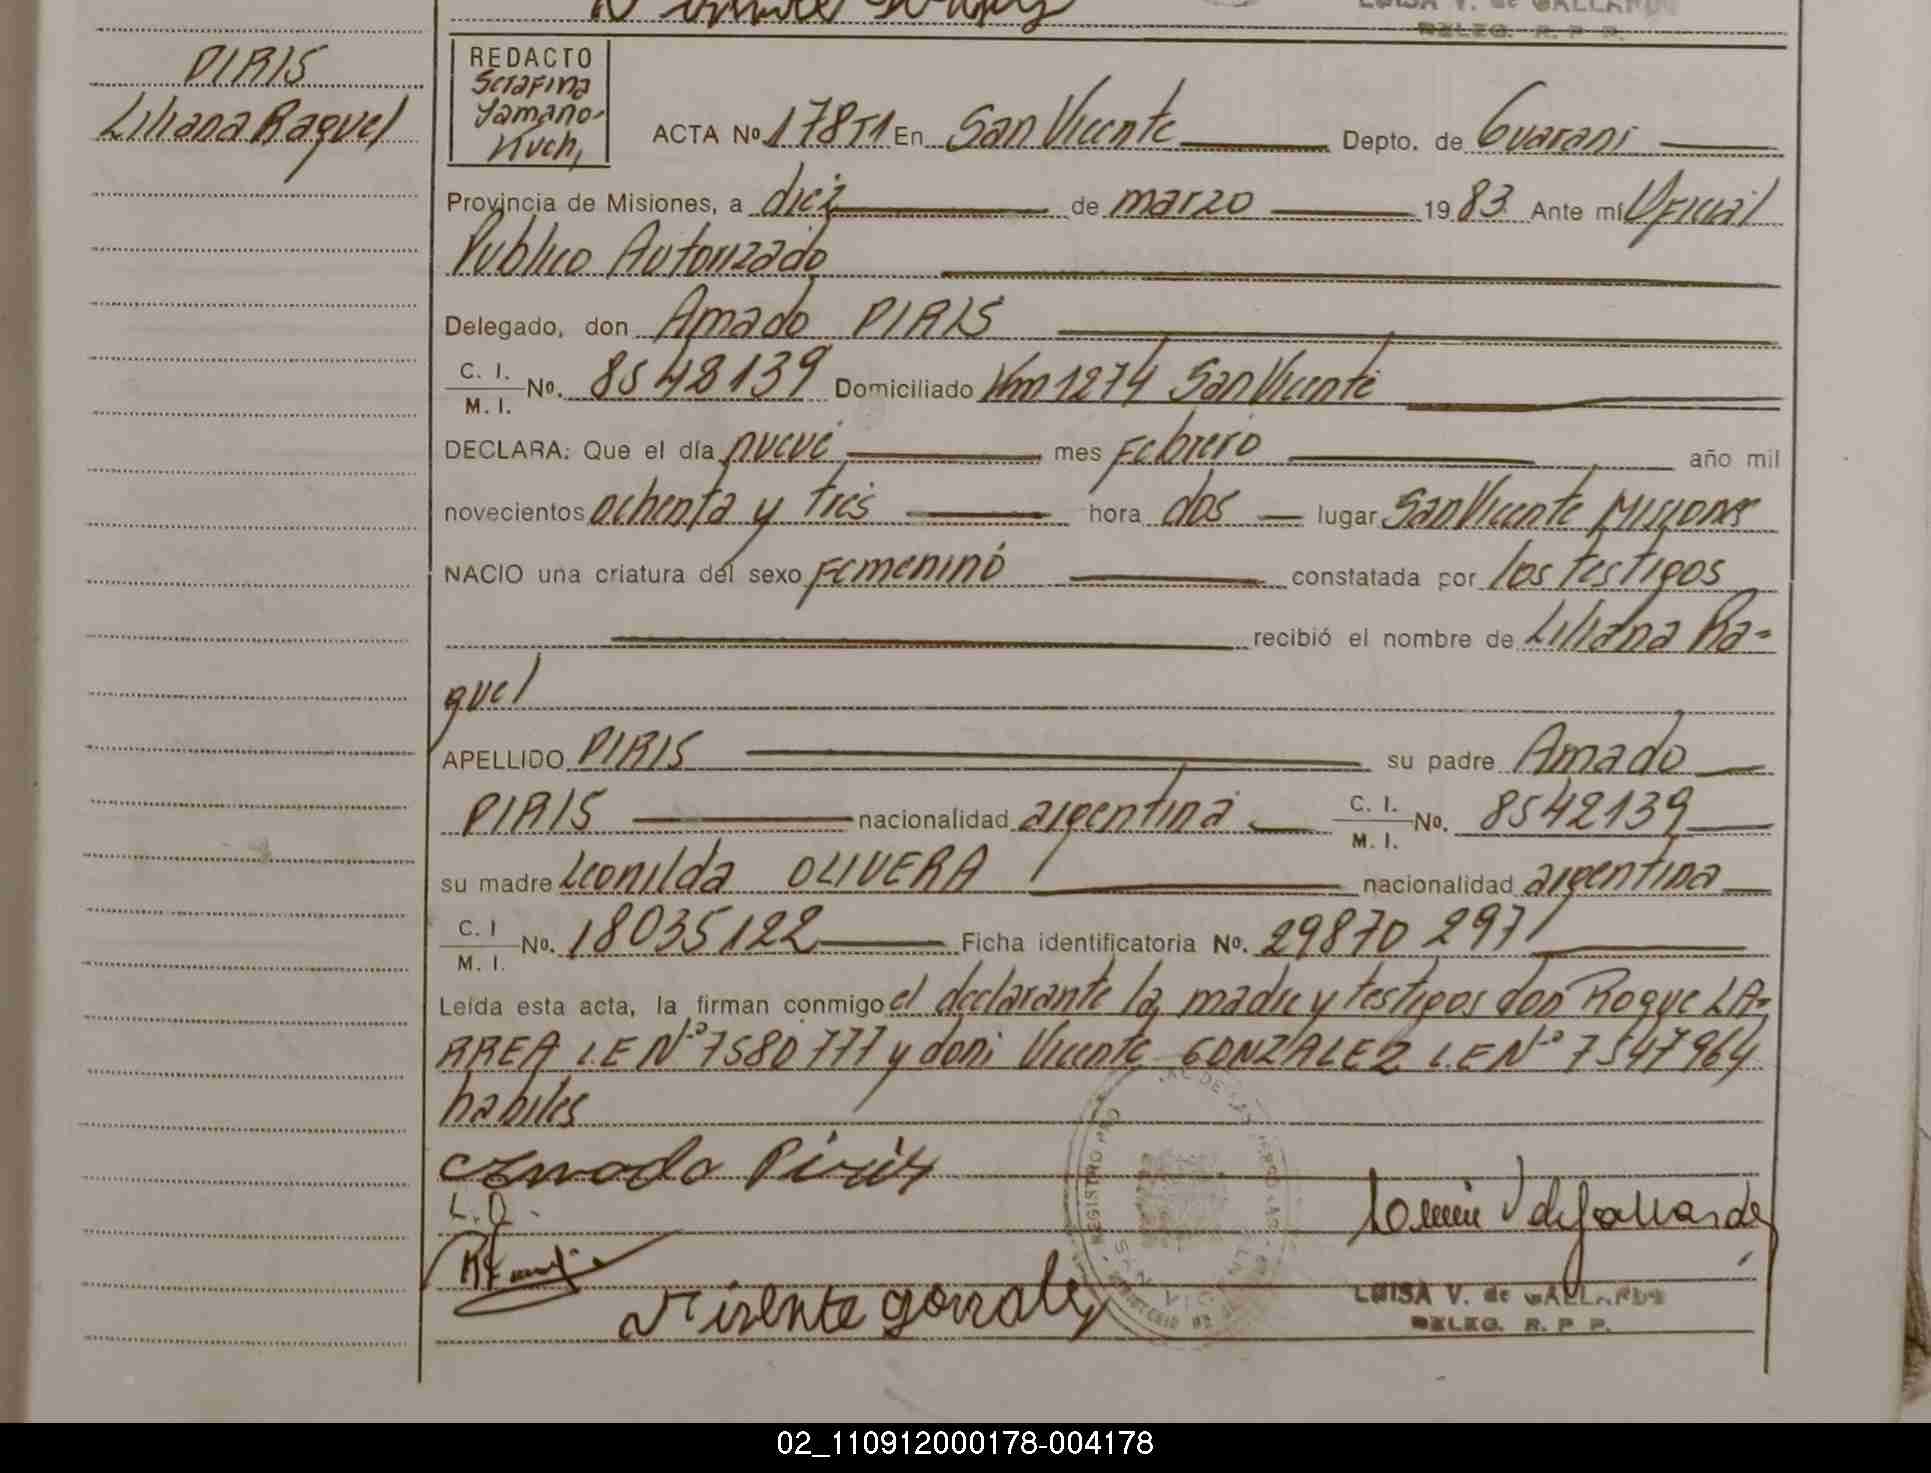 LUISA V. de GALLARDO
DELEG. R. P. P.
PIRIS
Liliana Raquel
REDACTO
Serafina
Yamano-
Kuchi
ACTA Nº 178T1 En San Vicente Depto. de Guarani
Provincia de Misiones, a diez de marzo 1983 Ante mí Oficial
Publico Autorizado
Delegado, don Amado PIRIS
C. I. M. I. Nº. 8548139 Domiciliado Km 1274 San Vicente
DECLARA: Que el día nueve mes Febrero año mil
novecientos ochenta y tres hora dos lugar San Vicente Misiones
NACIO una criatura del sexo Femenino constatada por los testigos
recibió el nombre de Liliana Ra-
quel
APELLIDO PIRIS su padre Amado
PIRIS nacionalidad argentina C. I. M. I. Nº. 8542139
su madre Leonilda OLIVERA nacionalidad argentina
C. I M. I. Nº. 18035122 Ficha identificatoria Nº. 29870 297
Leída esta acta, la firman conmigo el declarante la madre y testigos don Roque LA-
RREA L.E Nº 7580777 y don Vicente GONZALEZ L.E Nº 7547964
habiles
Amado Piris
L.O.
Vicente gonzalez
LUISA V. de GALLARDO
DELEG. R. P. P.
02_110912000178-004178